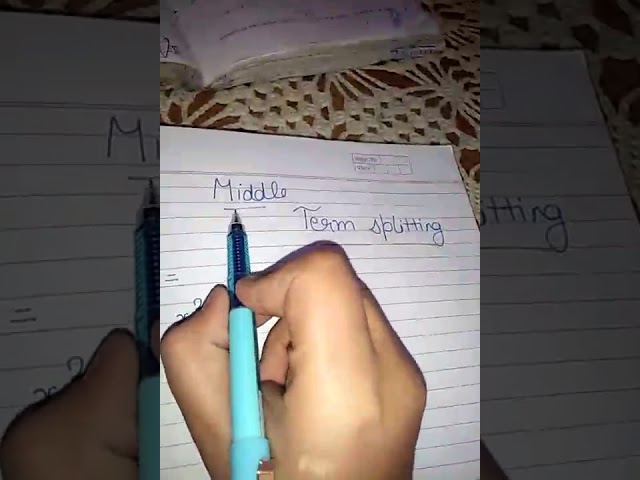 Middle
Term splitting
=
x²